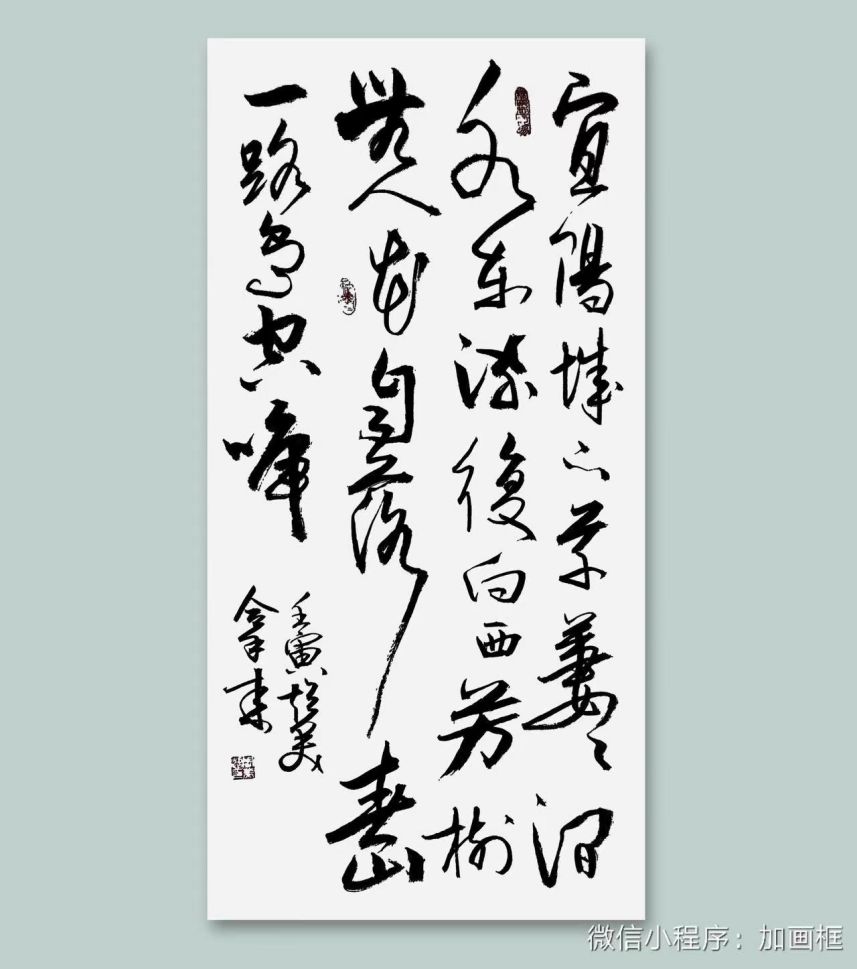 宜陽城下草萋々澗
水東流復向西芳樹
無人花自落春山
一路鳥空啼
壬寅
微信小程序：加画框